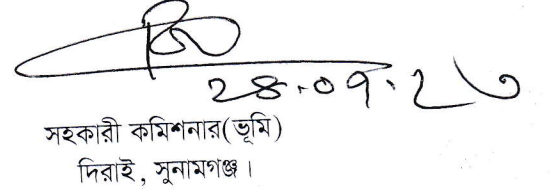 ২৪.০৭.২৩
সহকারী কমিশনার(ভূমি)
দিরাই, সুনামগঞ্জ।